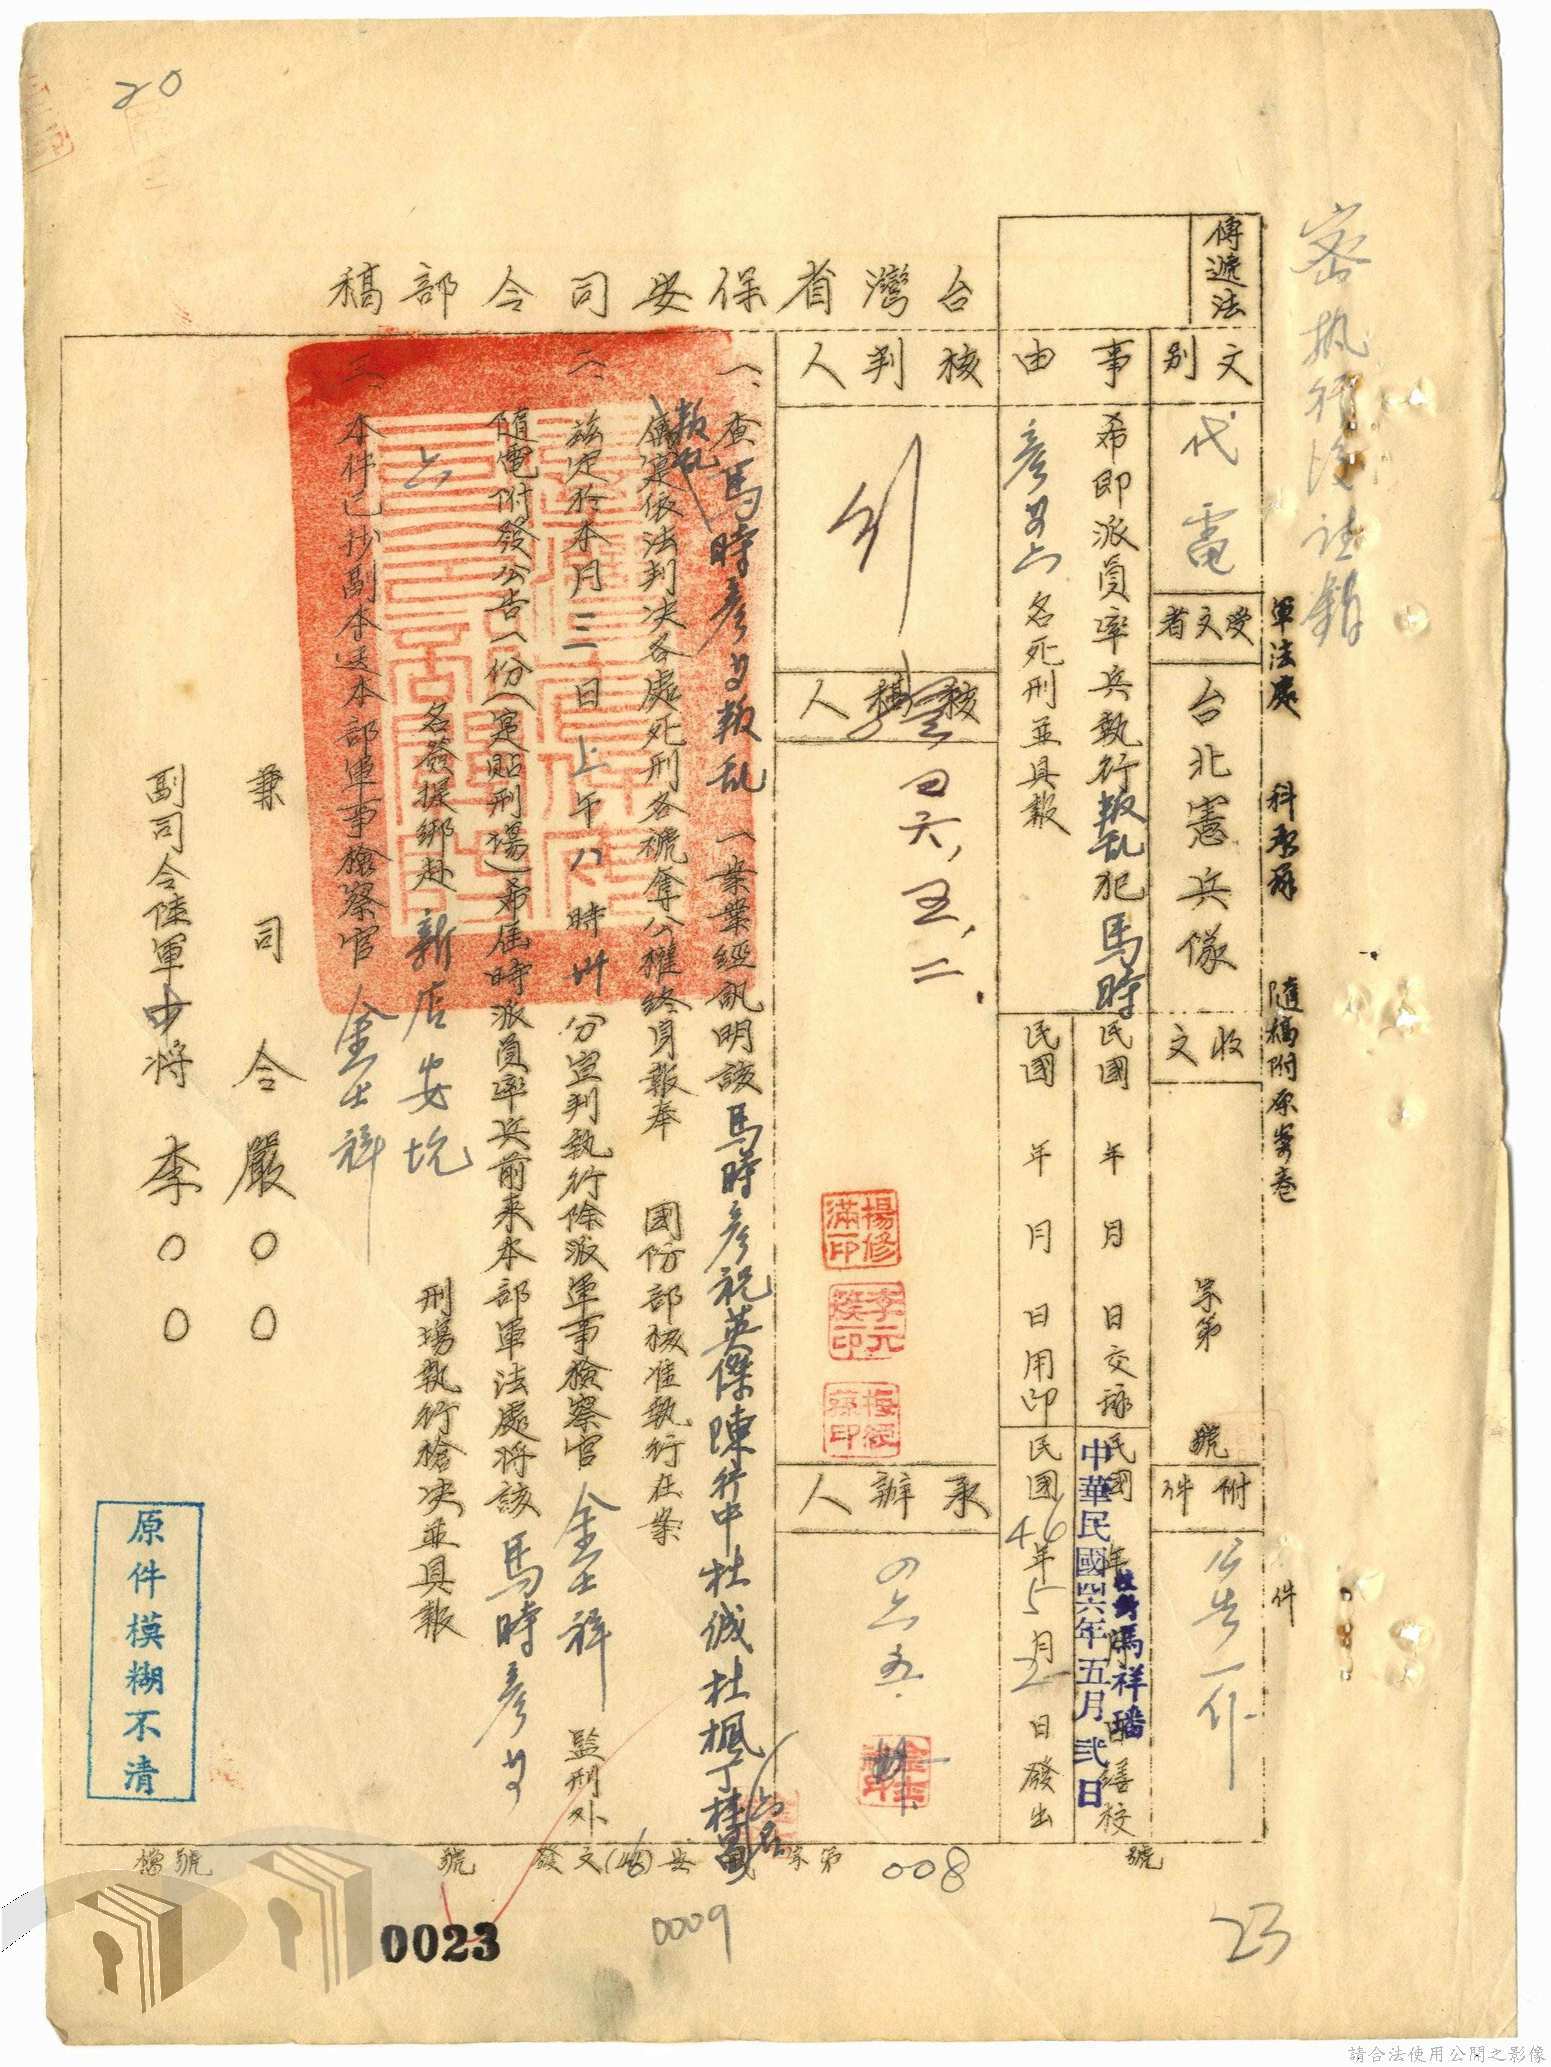 20
密 执行後註銷
軍法處 科承辦 隨稿附原案卷 件
台灣省保安司令部稿
傳遞法
文別
代電
受文者
台北憲兵隊
收文
字第 號
附件
公告一份
事由
希即派員率兵執行叛乱犯馬時
彥等六名死刑並具報
民國 年 月 日交辦
民國 年 月 日用印
民國 年 月 日繕校
校對馮祥璠
中華民國四六年五月弍日
民國46年5月2日發出
核判人
核稿人
四六,五,二.
楊修滿印
李元簇印
承辦人
一、查馬時彥等叛乱一案業經訊明該馬時彥祝英傑陳行中杜誠杜楓丁桂昌六名
叛乱
屬實依法判决各處死刑各褫奪公權終身報奉 國防部核准執行在案
二、茲定於本月三日上午八時卅分宣判執行除派軍事檢察官金士祥監刑外
隨電附發公告一份(實貼刑場)希屆時派員率兵前来本部軍法處將該馬時彥等
六名簽提綁赴新店安坑刑場執行槍决並具報
三、本件已抄副本送本部軍事檢察官金士祥
兼司令嚴○○
副司令陸軍中將李○○
原件模糊不清
檔號
發文(46)安 字第 008 號
號
0023
0009
23
請合法使用公開之影像